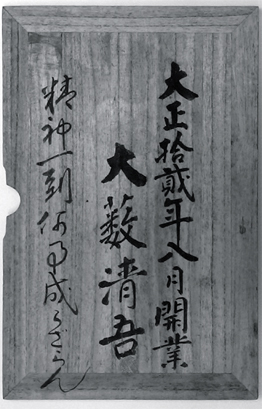 大正拾貳年八月開業
大薮清吾
精神一到何事成らざらん